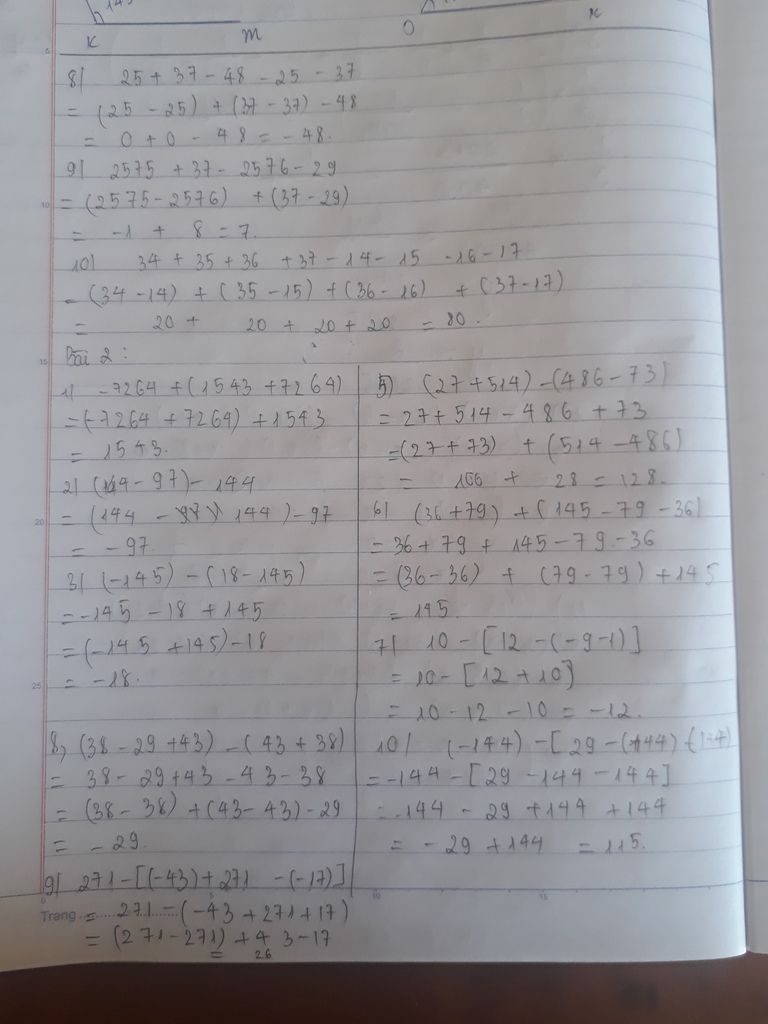 K m O x
8) 25 + 37 - 48 - 25 - 37
= (25 - 25) + (37 - 37) - 48
= 0 + 0 - 48 = - 48.
9) 2575 + 37 - 2576 - 29
= (2575 - 2576) + (37 - 29)
= -1 + 8 = 7.
10) 34 + 35 + 36 + 37 - 14 - 15 - 16 - 17
= (34 - 14) + (35 - 15) + (36 - 16) + (37 - 17)
= 20 + 20 + 20 + 20 = 80.
Bài 2 :
1) -7264 + (1543 + 7264)
= (-7264 + 7264) + 1543
= 1543.
2) (144 - 97) - 144
= (144 - 144) - 97
= - 97.
3) (-145) - (18 - 145)
= -145 - 18 + 145
= (-145 + 145) - 18
= -18.
5) (27 + 514) - (486 - 73)
= 27 + 514 - 486 + 73
= (27 + 73) + (514 - 486)
= 100 + 28 = 128.
6) (36 + 79) + (145 - 79 - 36)
= 36 + 79 + 145 - 79 - 36
= (36 - 36) + (79 - 79) + 145
= 145.
7) 10 - [12 - (-9 - 1)]
= 10 - [12 + 10]
= 10 - 12 - 10 = -12.
8, (38 - 29 + 43) - (43 + 38)
= 38 - 29 + 43 - 43 - 38
= (38 - 38) + (43 - 43) - 29
= - 29.
9) 271 - [(-43) + 271 - (-17)]
Trang = 271 - (-43 + 271 + 17)
= (271 - 271) + 43 - 17
= 26
10) (-144) - [29 - (+144) - (144)
= -144 - [29 - 144 - 144]
= -144 - 29 + 144 + 144
= - 29 + 144 = 115.